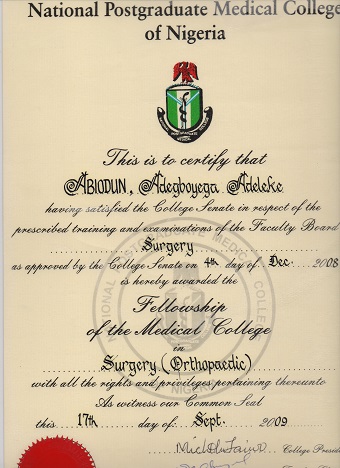 National Postgraduate Medical College
of Nigeria
This is to certify that
ABIODUN, Adegboyega Adeleke
having satisfied the College Senate in respect of the
prescribed training and examinations of the Faculty Board
Surgery
as approved by the College Senate on 4th day of Dec. 2008
is hereby awarded the
Fellowship
of the Medical College
in
Surgery (Orthopaedic)
with all the rights and privileges pertaining thereunto
As witness our Common Seal
This 17th day of: Sept. 2009
College Presid